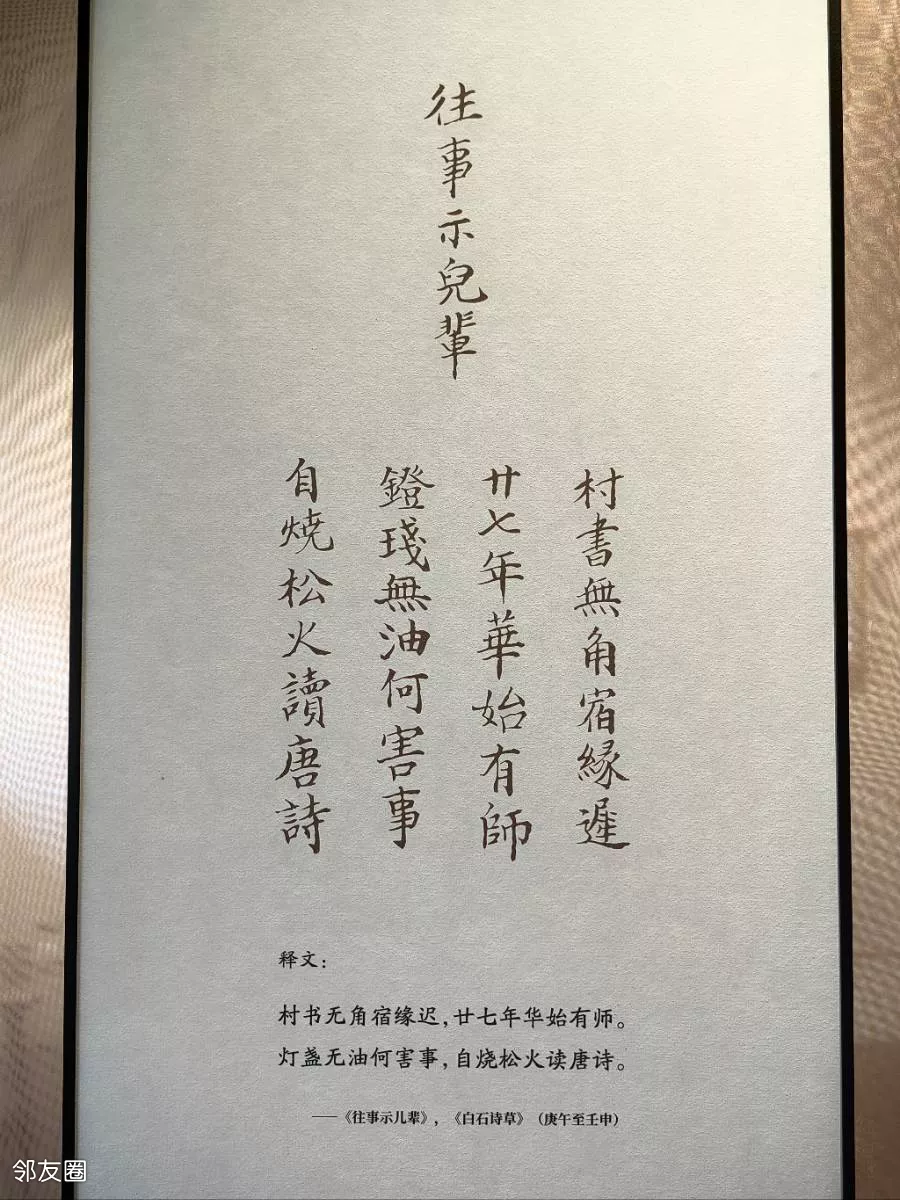 往事示兒輩
村書無角宿緣遲
廿七年華始有師
鐙琖無油何害事
自燒松火讀唐詩
释文：
村书无角宿缘迟，廿七年华始有师。
灯盏无油何害事，自烧松火读唐诗。
——《往事示儿辈》，《白石诗草》（庚午至壬申）
邻友圈